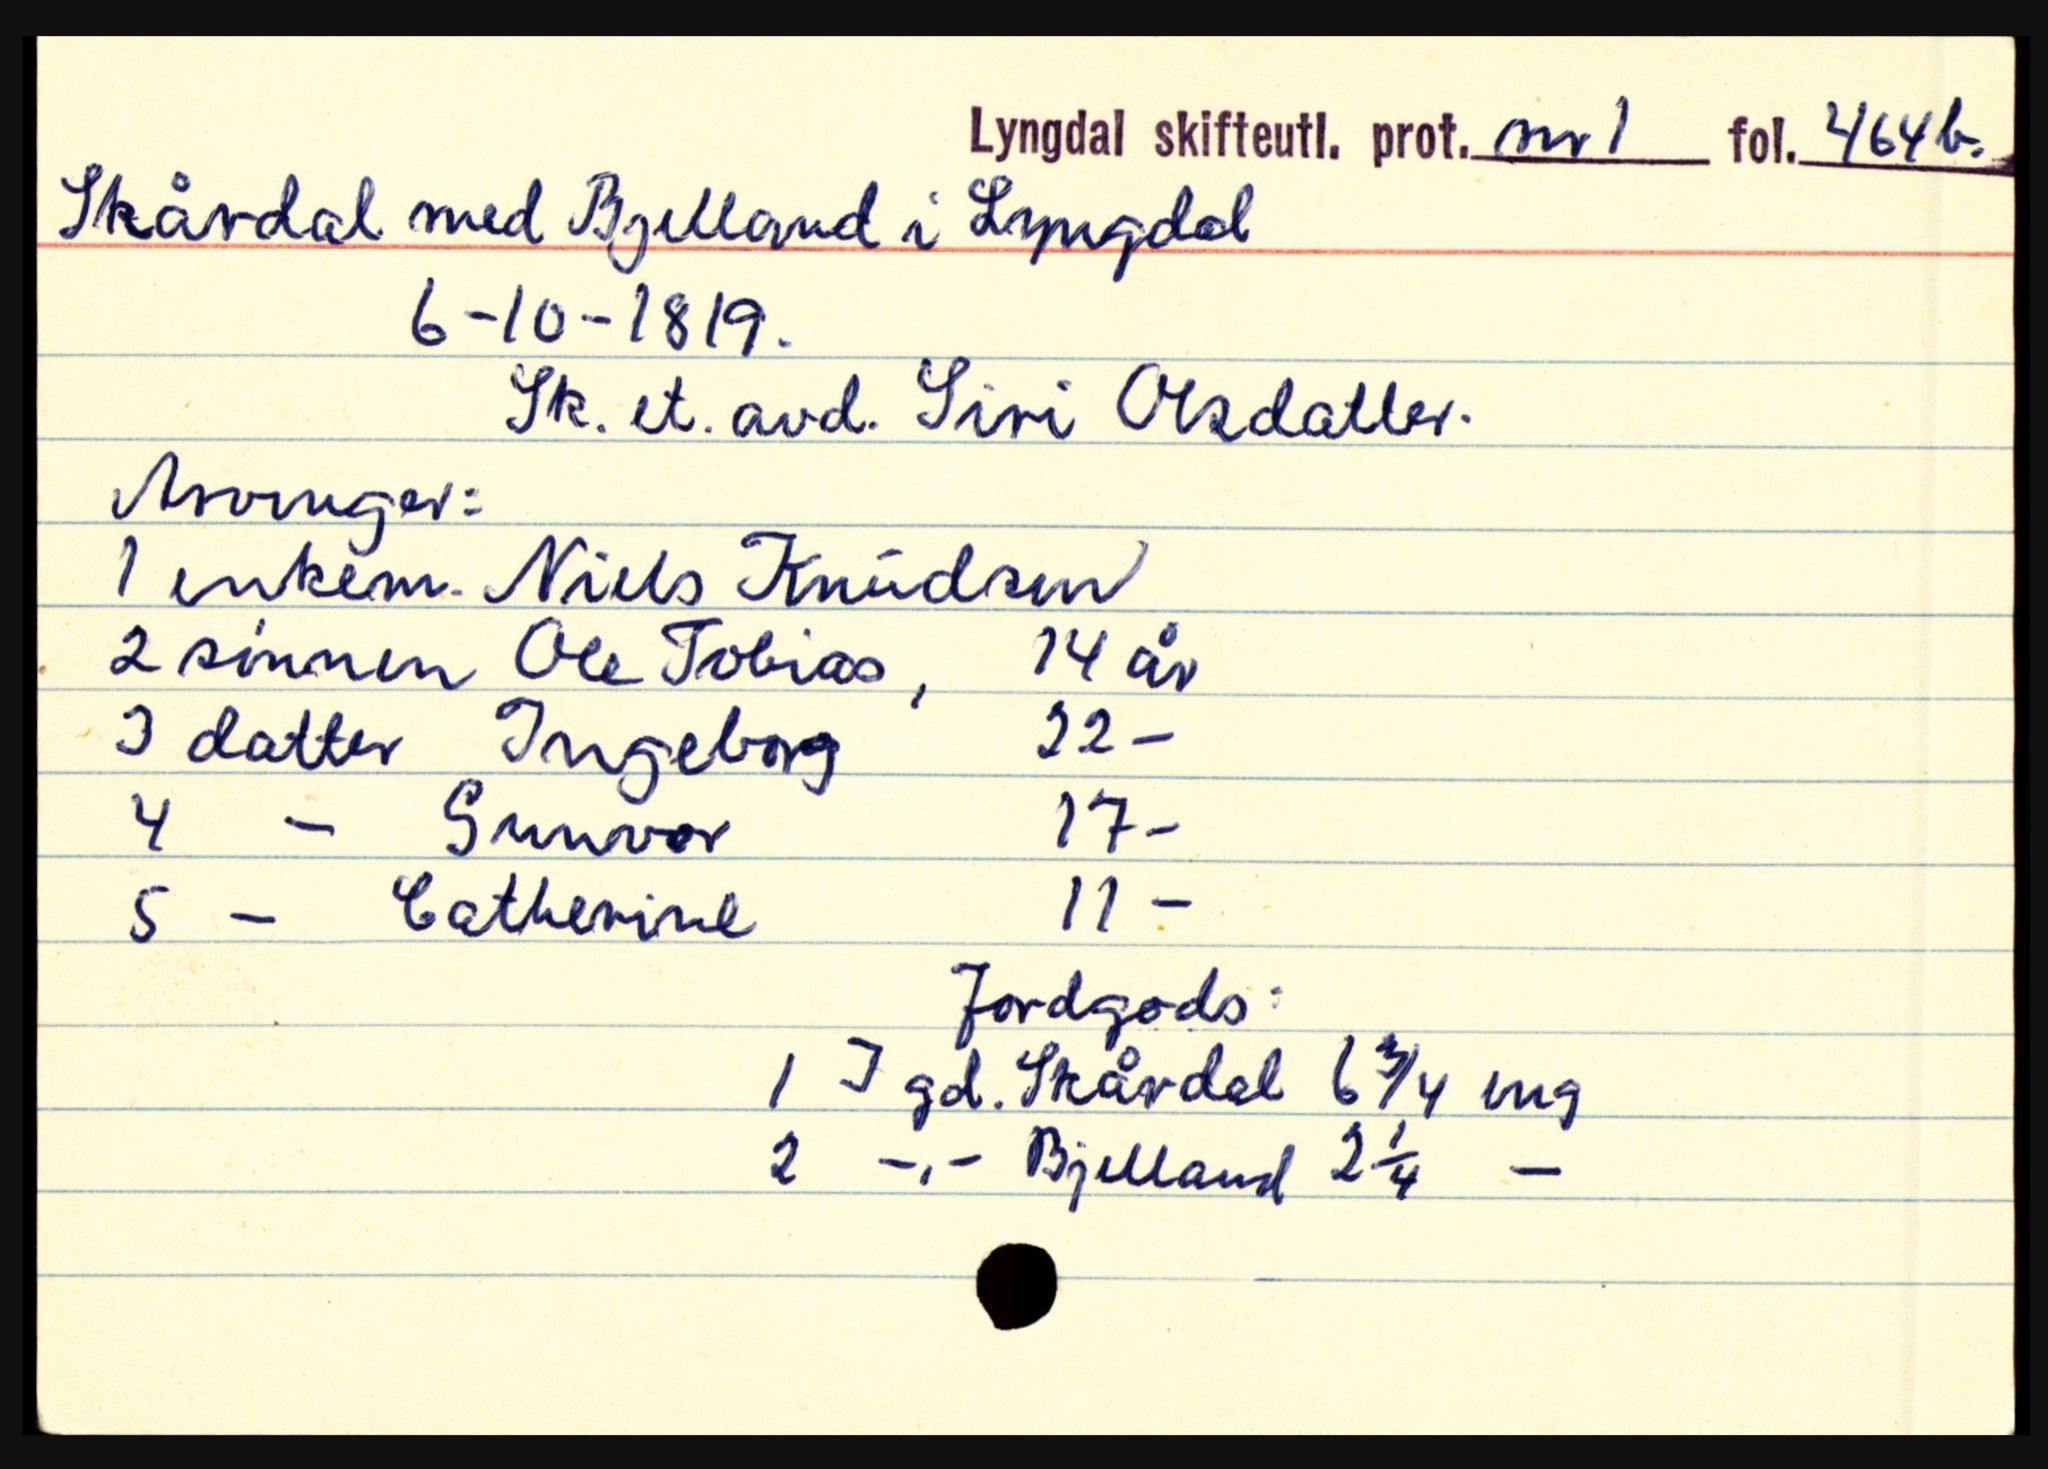 Lyngdal skifteutl. prot. nr 1 fol. 464b.
Skårdal med Bjelland i Lyngdal
6-10-1819.
Sk. et. avd. Siri Olsdatter.
Arvinger:
1 enkem. Niels Knudsen
2 sønnen Ole Tobias, 14 år
3 datter Ingeborg 22 -
4 - Gunvor 17 -
5 - Catherine 11 -
Jordgods:
1 I gd. Skårdal 6 3/4 eng
2 -,- Bjelland 2 1/4 -